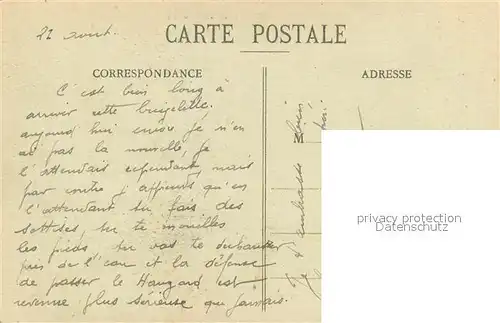 22 aout.
CARTE POSTALE
CORRESPONDANCE
ADRESSE
C'est bien long à
arriver cette
aujourd'hui encore je n'en
ai pas la nouvelle, je
l'attendais cependant, mais
par contre j'apprends qu'en
l'attendant tu fais des
sottises, tu te mouilles
les pieds tu vas te
près de l'eau et la défense
de passer le Hangard est
revenue plus sérieuse que jamais.
Je t'embrasse
privacy protection
www.delcampe.net